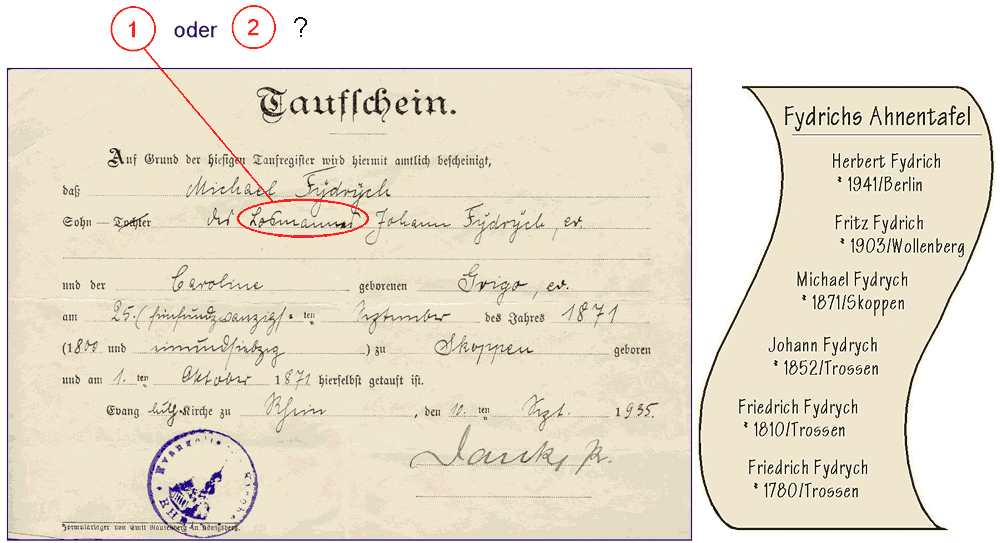 1 oder 2 ?
Taufschein.
Auf Grund der hiesigen Taufregister wird hiermit amtlich bescheinigt,
daß Michael Fÿdrÿch
Sohn — Tochter des Losmannes Johann Fÿdrÿch, ev.
und der Caroline geborenen Grigo, ev.
am 25. (fünfundzwanzig)sten September des Jahres 1871
(1800 und einundsiebzig) zu Skoppen geboren
und am 1. ten Oktober 1871 hierselbst getauft ist.
Evang. luth. Kirche zu Rhein, den 10. ten Sept. 1935.
Formularlager von Emil Rautenberg in Königsberg.
Fydrichs Ahnentafel
Herbert Fydrich
* 1941/Berlin
Fritz Fydrich
* 1903/Wollenberg
Michael Fydrych
* 1871/Skoppen
Johann Fydrych
* 1852/Trossen
Friedrich Fydrych
* 1810/Trossen
Friedrich Fydrych
* 1780/Trossen